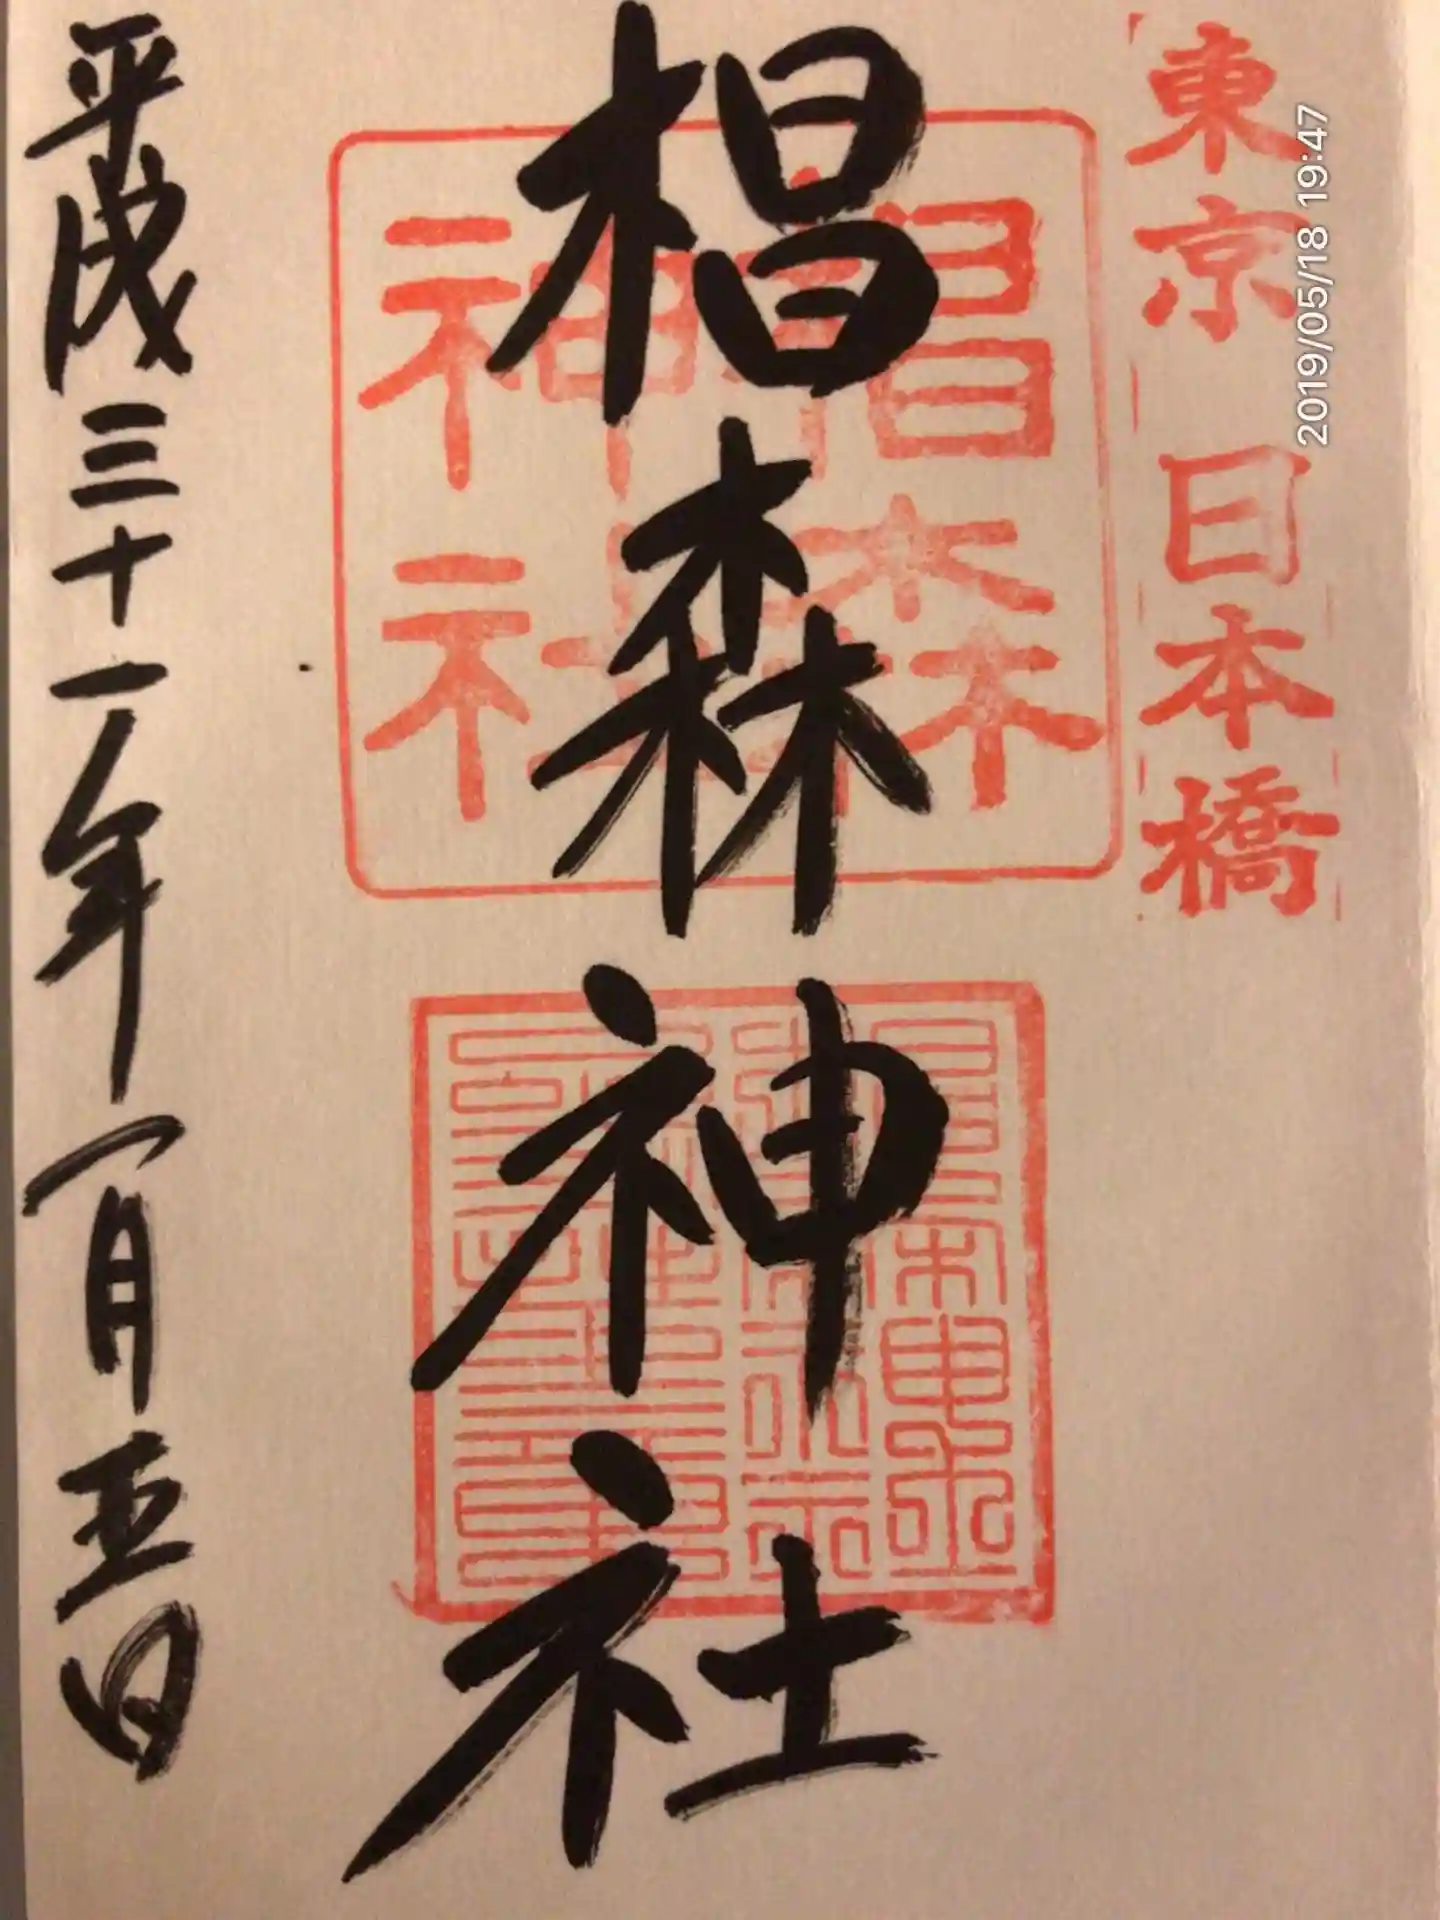 東京 日本橋
椙森神社
椙森
神社
平成三十一年一月五日
2019/05/18 19:47